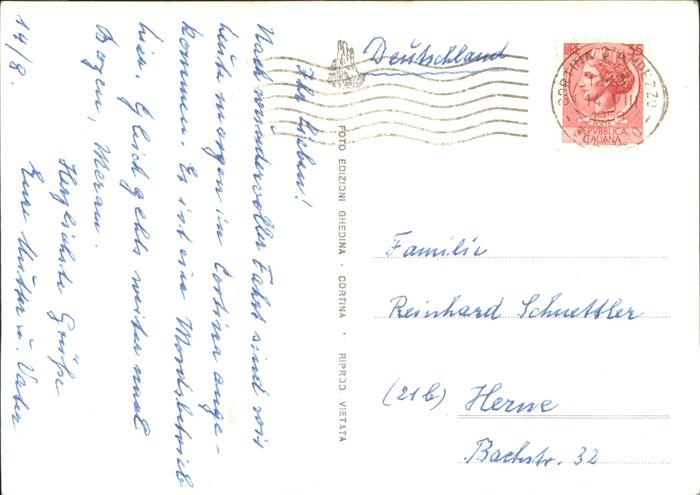 14/8.
Ihr Lieben!
Nach wundervoller Fahrt sind wir
heute morgen in Cortina ange-
kommen. Es ist ein Mordsbetrieb
hier. Gleich gehts weiter nach
Bozen, Meran.
Herzlichste Grüße
Eure Mutter u. Vater
FOTO EDIZIONI GHEDINA · CORTINA · RIPROD VIETATA
Deutschland
LIRE 35
REPVBBLICA
ITALIANA
CORTINA D'AMPEZZO
Familie
Reinhard Schuettler
(21b) Herne
Bachstr. 32